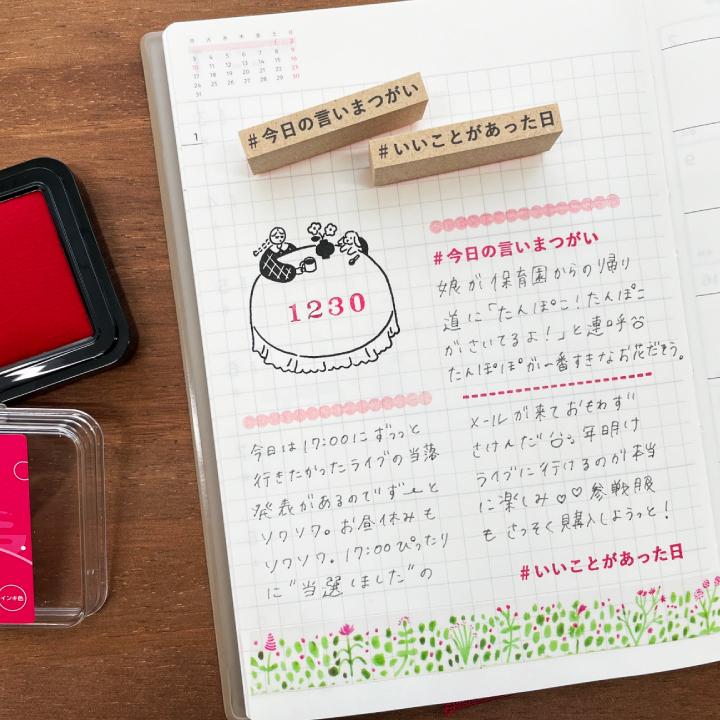 月 火 水 木 金 土 日
1 2
3 4 5 6 7 8 9
10 11 12 13 14 15 16
17 18 19 20 21 22 23
24 25 26 27 28 29 30
31
1
#今日の言いまつがい
#いいことがあった日
1230
#今日の言いまつがい
娘が保育園からの帰り
道に「たんぽこ!たんぽこ
がさいてるよ!」と連呼
たんぽぽが一番すきなお花だそう。
今日は17:00にずっっと
行きたかったライブの当落
発表があるのでずーっと
ソワソワ。お昼休みも
ソワソワ。17:00ぴったり
に"当選しました"の
メールが来ておもわず
さけんだ 年明け
ライブに行けるのが本当
に楽しみ♡♡参戦服
も さっそく購入しようっと!
#いいことがあった日
インキ色